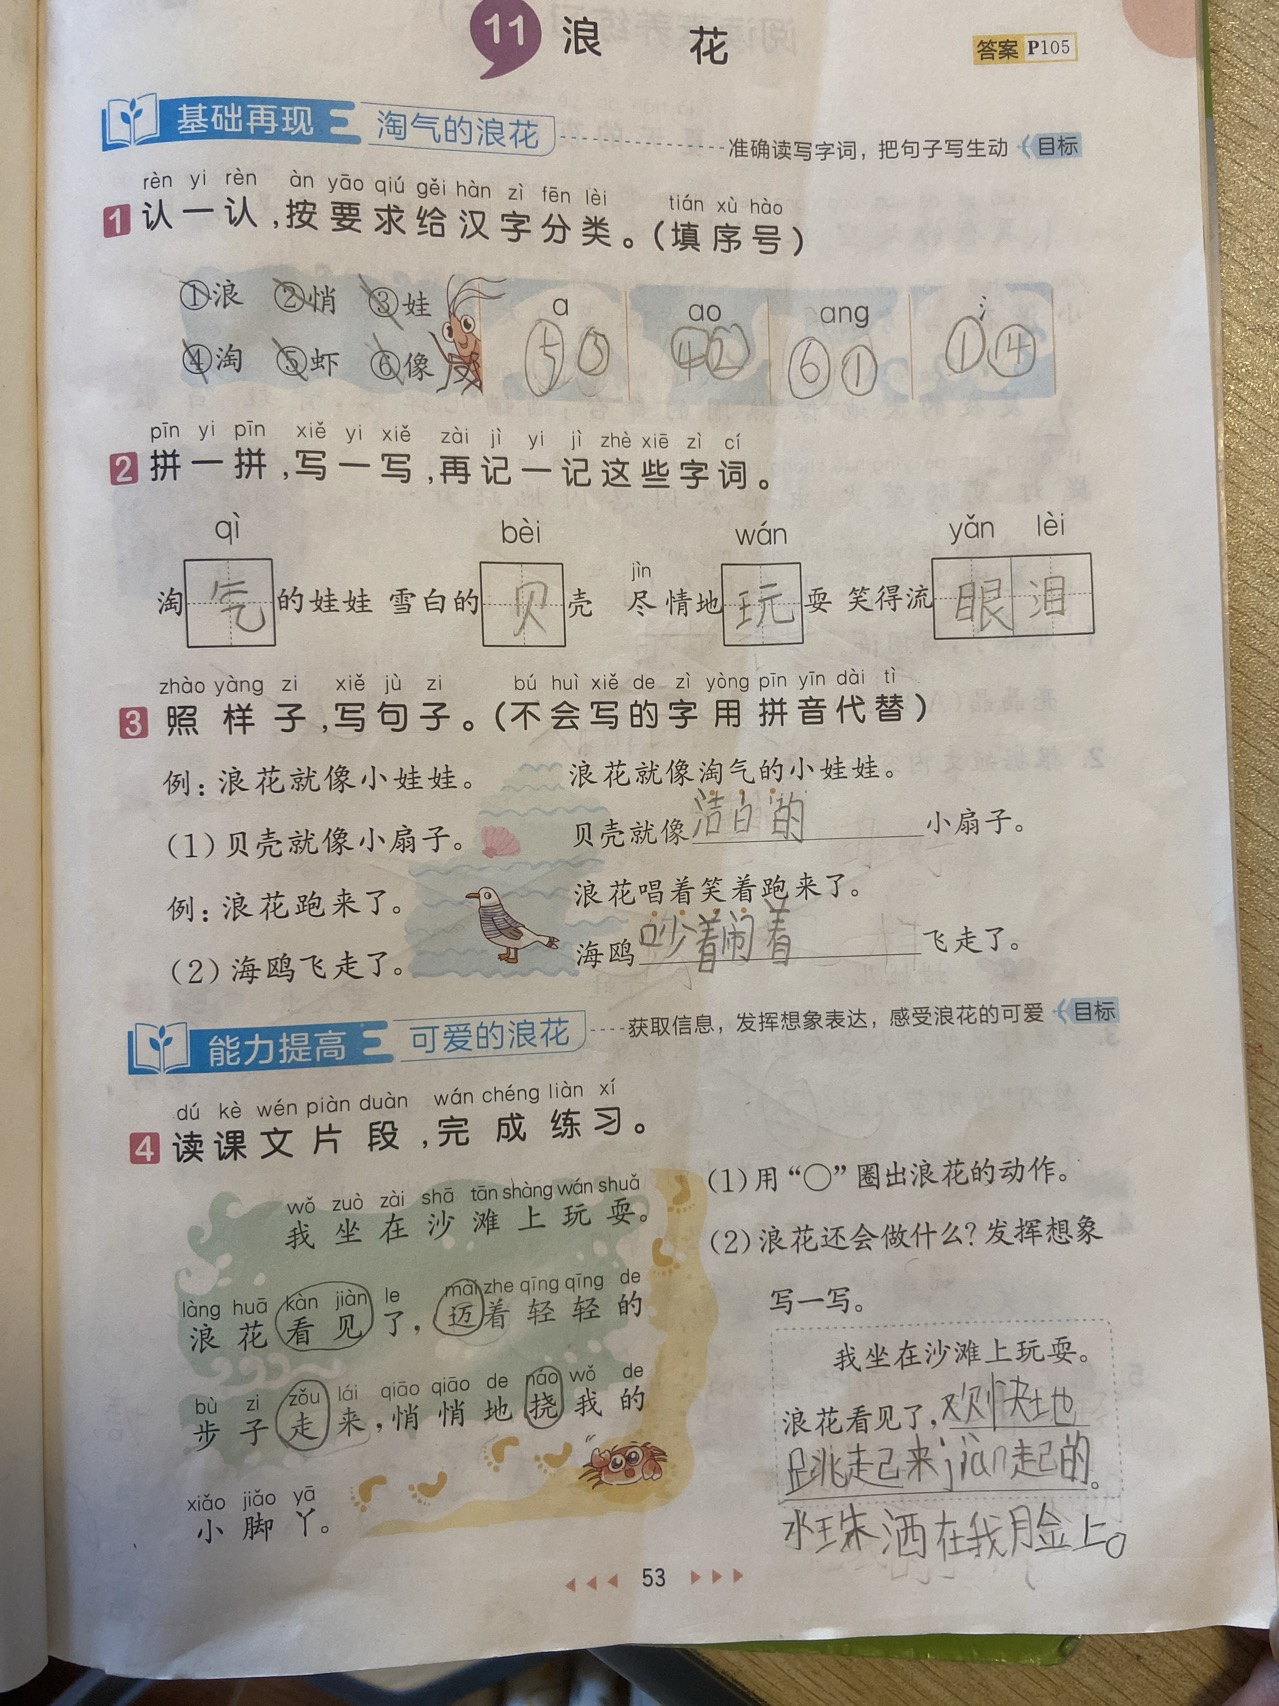 11 浪 花
答案 P105
基础再现 淘气的浪花 准确读写字词，把句子写生动 目标
rèn yi rèn àn yāo qiú gěi hàn zì fēn lèi tián xù hào
1 认一认,按要求给汉字分类。(填序号)
①浪 ②悄 ③娃
④淘 ⑤虾 ⑥像
a ao ang 氵
⑤③ ④② ⑥① ①④
pīn yi pīn xiě yi xiě zài jì yi jì zhè xiē zì cí
2 拼一拼,写一写,再记一记这些字词。
qì bèi wán yǎn lèi
jìn
淘气的娃娃 雪白的贝壳 尽情地玩耍 笑得流眼泪
zhào yàng zi xiě jù zi bú huì xiě de zì yòng pīn yīn dài tì
3 照样子,写句子。(不会写的字用拼音代替)
例:浪花就像小娃娃。 浪花就像淘气的小娃娃。
(1)贝壳就像小扇子。 贝壳就像洁白的小扇子。
例:浪花跑来了。 浪花唱着笑着跑来了。
(2)海鸥飞走了。 海鸥吵着闹着飞走了。
能力提高 可爱的浪花 获取信息，发挥想象表达，感受浪花的可爱 目标
dú kè wén piàn duàn wán chéng liàn xí
4 读课文片段,完成练习。
wǒ zuò zài shā tān shàng wán shuǎ
我坐在沙滩上玩耍。
làng huā kàn jiàn le mài zhe qīng qīng de
浪花看见了,迈着轻轻的
bù zi zǒu lái qiāo qiāo de náo wǒ de
步子走来,悄悄地挠我的
xiǎo jiǎo yā
小脚丫。
(1)用“○”圈出浪花的动作。
(2)浪花还会做什么?发挥想象
写一写。
我坐在沙滩上玩耍。
浪花看见了,欢快地
跳起来jiàn起的。
水珠洒在我脸上。
53